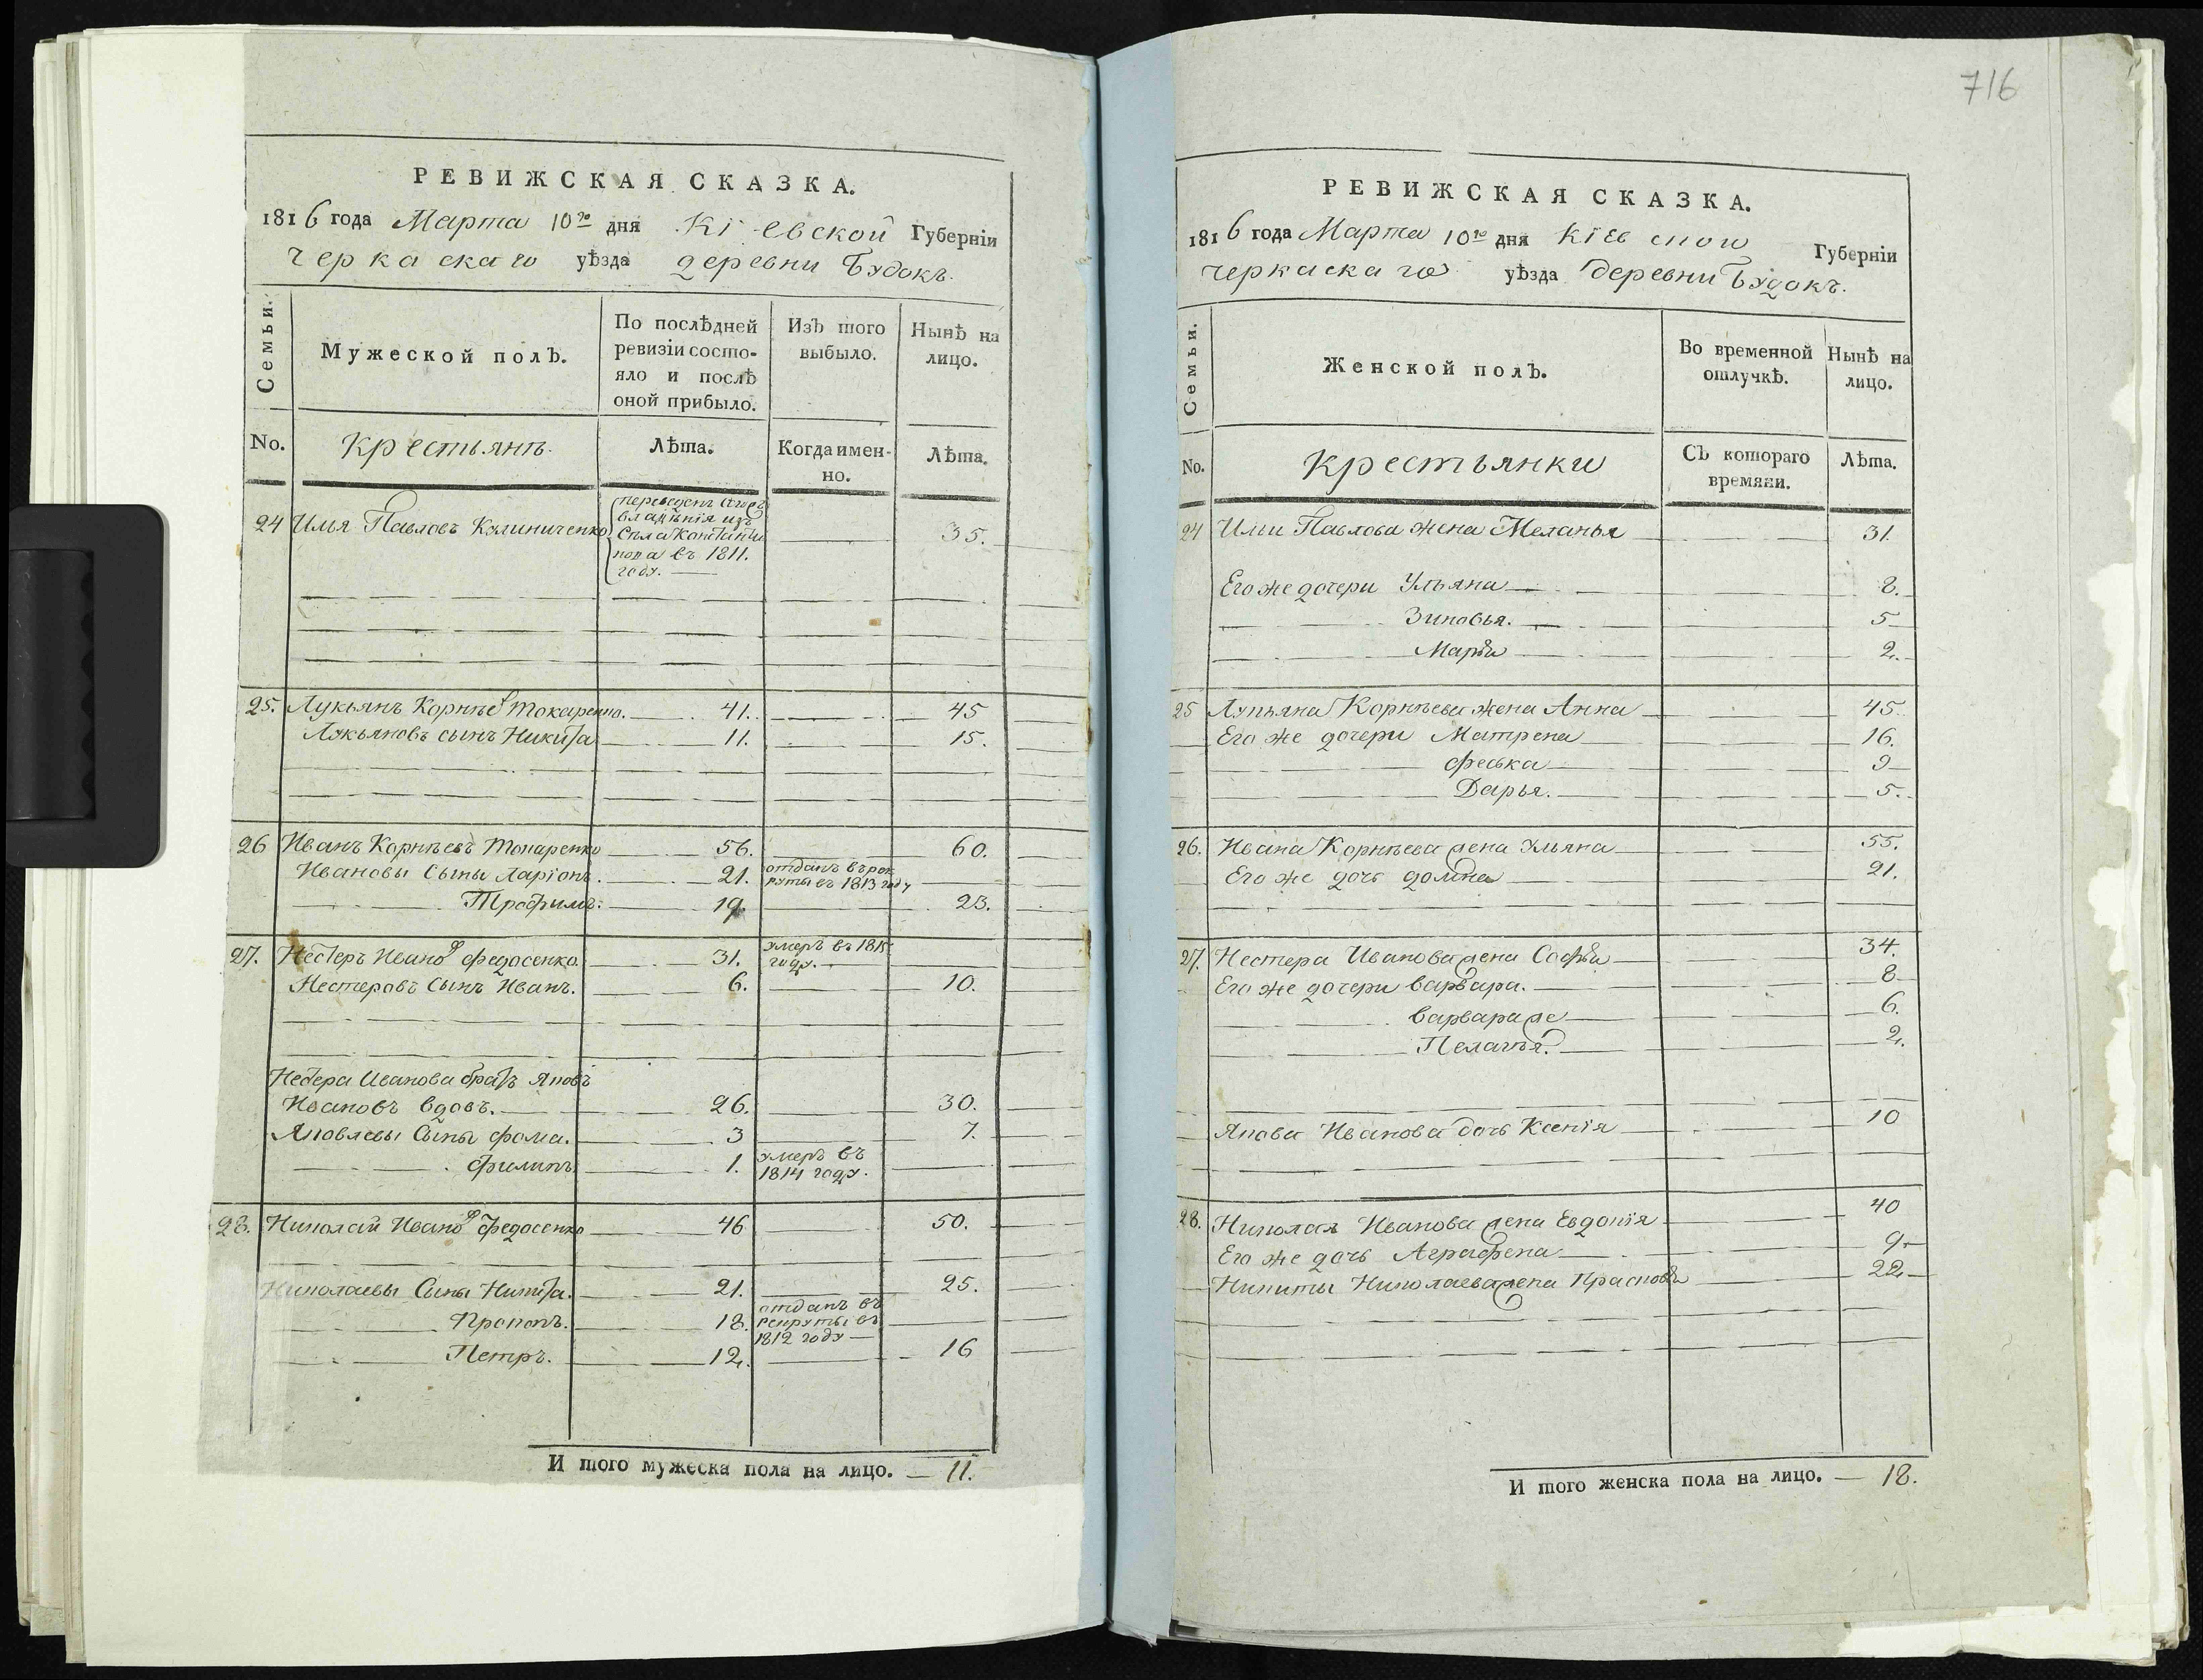 РЕВИЖСКАЯ СКАЗКА.
1816 года Марта 10го дня Кіевской Губерніи
Черкаскаго уѣзда деревни Будокъ.
Семьи.
Мужеской полъ.
По послѣдней ревизіи состояло и послѣ оной прибыло.
Изъ того выбыло.
Нынѣ на лицо.
No. Крестьянъ. Лѣта. Когда именно. Лѣта.
24 Илья Павловъ Калиниченко
владѣнія изъ
Села Константи
нова въ 1811.
году.
35.
25. Лукьянъ Корнѣевъ Токаренко. 41. 45
Лукьяновъ сынъ Никита 11. 15.
26 Иванъ Корнѣевъ Токаренко 56. 60.
Ивановы Сыны Ларіонъ. 21. отданъ въ рек
руты въ 1813 году
Трофимъ. 19. 23.
27. Нестеръ Ивановъ Федосенко. 31. умеръ въ 1815
году.
Нестеровъ Сынъ Иванъ. 6. 10.
Нестера Иванова братъ Яковъ
Ивановъ вдовъ. 26. 30.
Яковлевы Сыны Фома. 3 7.
Филипъ 1. умеръ въ
1814 году.
28. Николай Ивановъ Федосенко 46 50.
Николаевы Сыны Никита. 21. 25.
Прокопъ. 18. отданъ въ
рекруты въ
1812 году
Петръ. 12. 16
И того мужеска пола на лицо. 11.
716
РЕВИЖСКАЯ СКАЗКА.
1816 года Марта 10го дня Кіевской Губерніи
Черкаскаго уѣзда деревни Будокъ.
Семьи.
Женской полъ.
Во временной отлучкѣ.
Нынѣ на лицо.
No. Крестьянки Съ котораго времяни. Лѣта.
24 Ильи Павлова жена Меланья 31.
Его же дочери Ульяна 8.
Зиновья. 5
Марья 2.
25 Лукьяна Корнѣева жена Анна 45.
Его же дочери Матрена 16.
Феська 9
Дарья. 5.
26. Ивана Корнѣева жена Ульяна 55.
Его же дочь Домна 21.
27. Нестера Иванова жена Софья 34.
Его же дочери варвара. 8
варвара же 6.
Пелагья. 2.
Якова Иванова дочь Ксенія 10
28. Николая Иванова жена Евдокія 40
Его же дочь Аграфена 9
Никиты Николаева жена Прасковья 22
И того женска пола на лицо. 18.